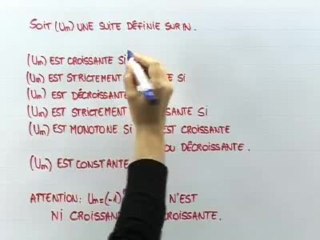 SOIT (Un) UNE SUITE DÉFINIE SUR N.
(Un) EST CROISSANTE SI
(Un) EST STRICTEMENT SI
(Un) EST DÉCROISSANTE
(Un) EST STRICTEMENT SI
(Un) EST MONOTONE SI EST CROISSANTE
OU DÉCROISSANTE.
(Un) EST CONSTANTE
ATTENTION: Un=(-1) N'EST
NI CROISSANTE CROISSANTE.